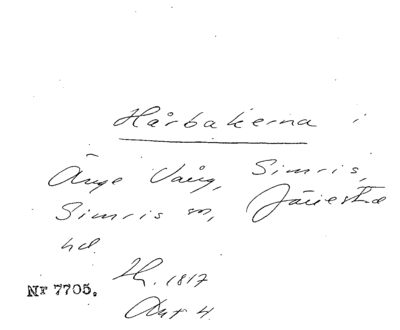 Hårbakerna i
Änge Vång, Simris,
Simris sn, Järrestad
hd.
H. 1817
Nr 7705.
Akt 4